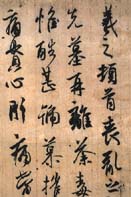 羲之頓首喪亂之
先墓再離荼毒
惟酷甚號慕摧
痛貫心肝痛當